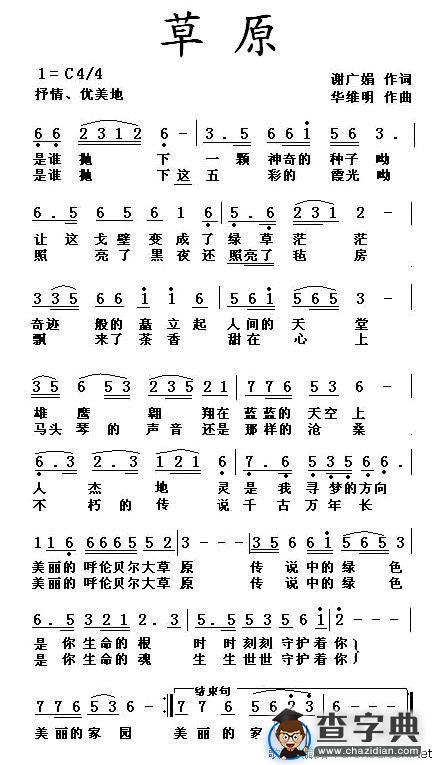 草原
1=C4/4 谢广娟 作词
抒情、优美地 华维明 作曲
6 6 2312 6 - | 3. 5 661 56 3. |
是谁 抛 下 一 颗 神奇的 种子 呦
是谁 抛 下这 五 彩的 霞光 呦
6. 5 6 5 6 1. 6 | 5. 6 231 2 - |
让 这 戈壁 变成了 绿草茫 茫
照 亮了黑夜还 照亮了毡 房
335 66 i i 6 | 561 565 3 - |
奇迹 般的 矗立起 人间的 天 堂
飘 来了 茶香 甜在 心 上
35 6 53 2 3 21 | 7 7 6 5 3 0 |
雄 鹰 翱 翔在 蓝蓝的 天空上
马头 琴的 声音 还是 那样的 沧 桑
6. 3 2. 3 121 6 | 7. 6 5356 6. |
人 杰 地 灵 是 我 寻梦的方向
不 朽的 传 说 千古 万年 长
116 6665 52 - | 35 6 6i 565 3 |
美丽的 呼伦贝尔大草原 传 说中的 绿 色
美丽的 呼伦贝尔大草原 传 说中的 绿 色
6. 5 3212. | 5. 5535 63i | 2 - - - |
是 你 生命的 根 时 时刻刻 守护着你
是 你 生命的 魂 生 生世世 守护着你
结束句
7 7 6 5 6 - :| 7 7 6 5 7 | 6 - - - ||
美丽的 家 园 美丽的 家
查字典
www.chazidian.com